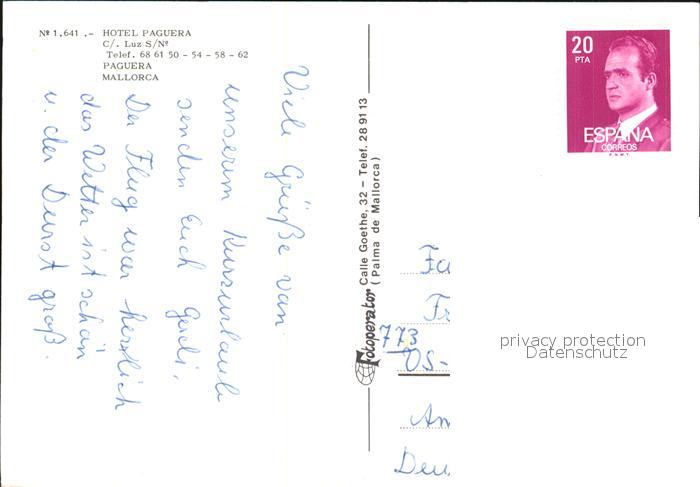 Nº 1.641 .- HOTEL PAGUERA
C/. Luz S/Nº
Telef. 68 61 50 - 54 - 58 - 62
PAGUERA
MALLORCA
Viele Grüße von
unserem Kurzurlaub
senden Euch Gerdi.
Der Flug war herrlich
das Wetter ist schön
u. der Durst groß.
Fotoperator Calle Goethe, 32 – Telef. 28 91 13
(Palma de Mallorca)
20
PTA
ESPAÑA
CORREOS
F.N.M.T.
Fa
Fr
773
OS-
Am
Deu
privacy protection
Datenschutz